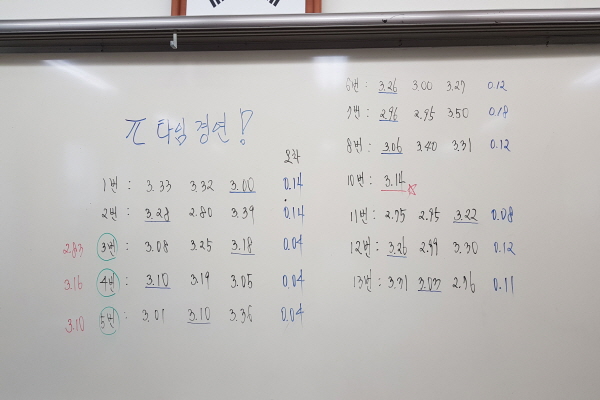 π 타임 경연!
오차
1번 : 3.33 3.32 3.00 0.14
2번 : 3.28 2.80 3.39 0.14
2.83 3번 : 3.08 3.25 3.18 0.04
3.16 4번 : 3.10 3.19 3.05 0.04
3.10 5번 : 3.01 3.10 3.36 0.04
6번 : 3.26 3.00 3.27 0.12
7번 : 2.96 2.95 3.50 0.18
8번 : 3.06 3.40 3.31 0.12
10번 : 3.14
11번 : 2.75 2.95 3.22 0.08
12번 : 3.26 2.99 3.30 0.12
13번 : 3.31 2.96 0.11